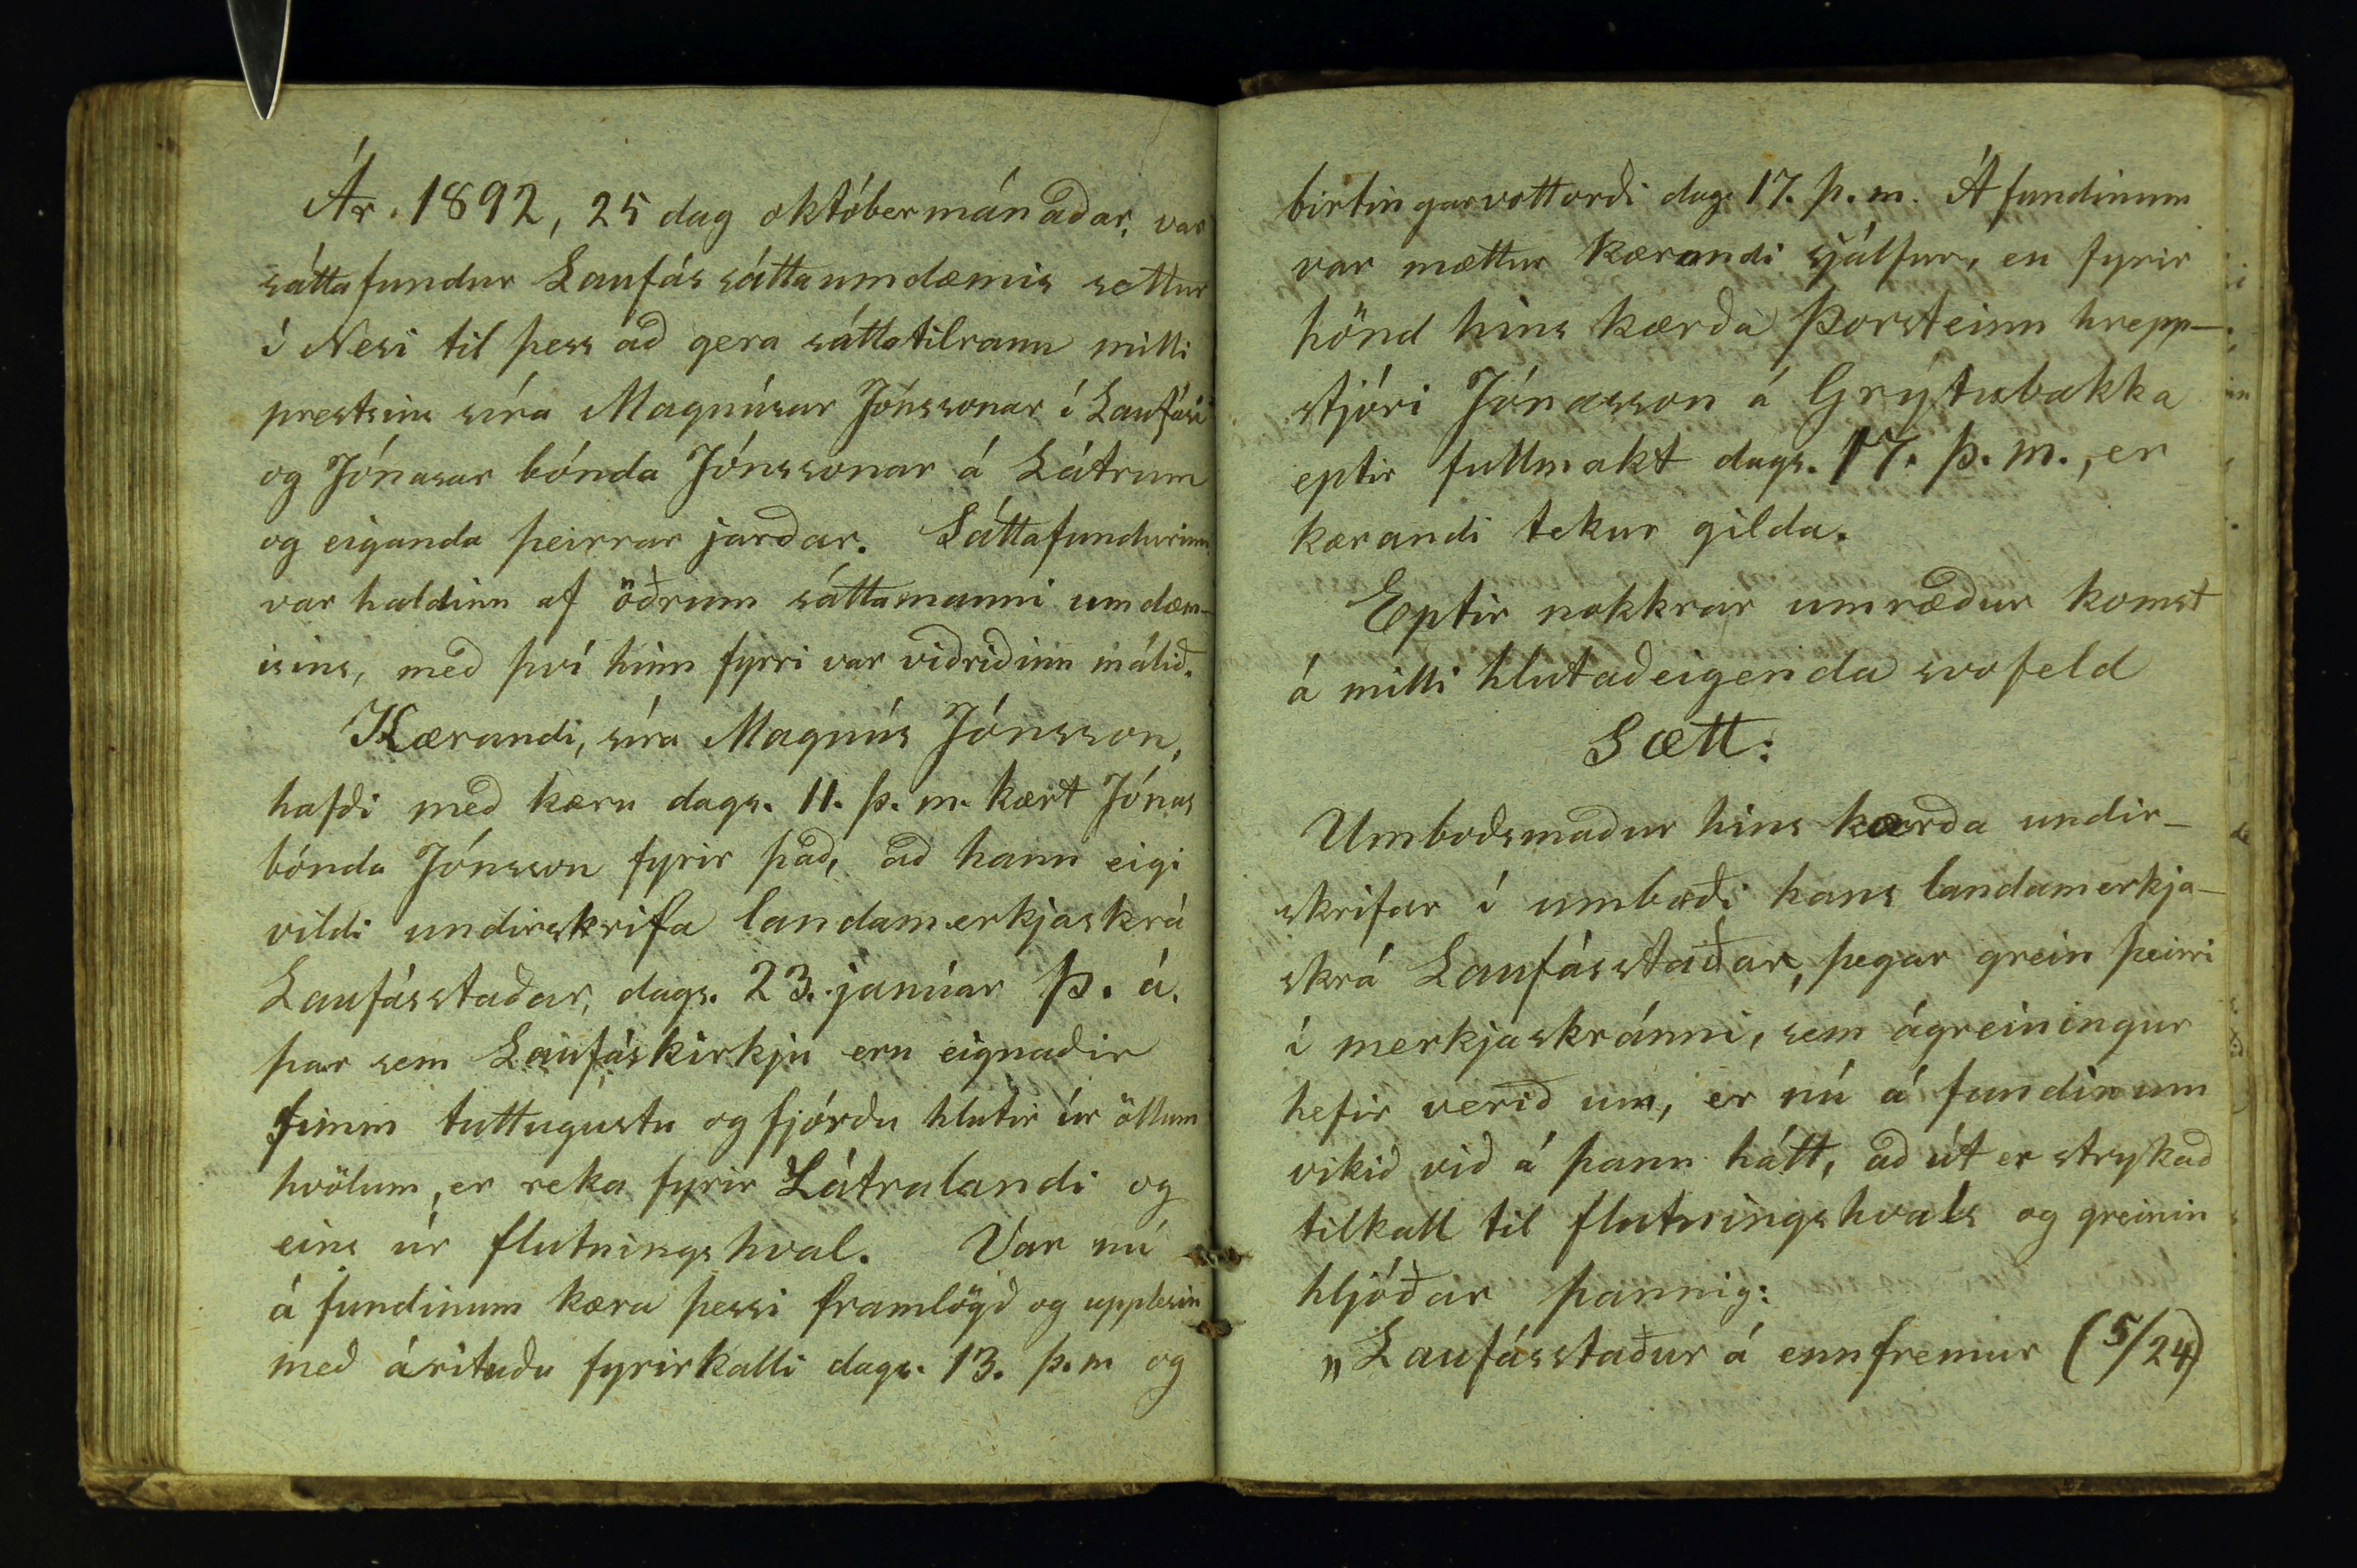 Ár. 1892, 25 dag októbermánaðar, var
sáttafundur Laufás sáttaumdæmis settur
í Nesi til þess að gera sáttatilraun milli
prestsins síra Magnúsar Jónssonar í Laufási
og Jónasar bónda Jónssonar á Látrum
og eiganda þeirrar jarðar. Sáttafundurinn
var haldinn af öðrum sáttamanni umdæm-
isins, með því hinn fyrri var viðriðinn málið.
Kærandi, síra Magnús Jónsson,
hafði með kæru dags. 11. þ. m. kært Jónas
bónda Jónsson fyrir það, að hann eigi
vildi undirskrifa landamerkjaskrá
Laufásstaðar, dags. 23. janúar þ. á.
þar sem Laufáskirkju eru eignaðir
fimm tuttugustu og fjórðu hlutir úr öllum
hvölum, er reka fyrir Látralandi og
eins úr flutningshval. Var nú
á fundinum kæra þessi framlögð og upplesin
með árituðu fyrirkalli dags. 13. þ. m og
birtingarvottorði dags 17. þ. m. Á fundinum
var mættur kærandi sjálfur, en fyrir
hönd hins kærða Þorsteinn hrepp-
stjóri Jónasson á Grýtubakka
eptir fullmakt dags. 17. þ. m., er
kærandi tekur gilda.
Eptir nokkrar umræður komst
á milli hlutaðeigenda svofeld
Sætt:
Umboðsmaður hins kærða undir-
skrifar í umboði hans landamerkja-
skrá Laufásstaðar, þegar grein þeirri
í merkjaskránni, sem ágreiningur
hefir verið um, er nú á fundinum
vikið við á þann hátt, að út er strykað
tilkall til flutningshvals og greinin
hljóðar þannig:
„Laufásstaður á ennfremur (5/24)